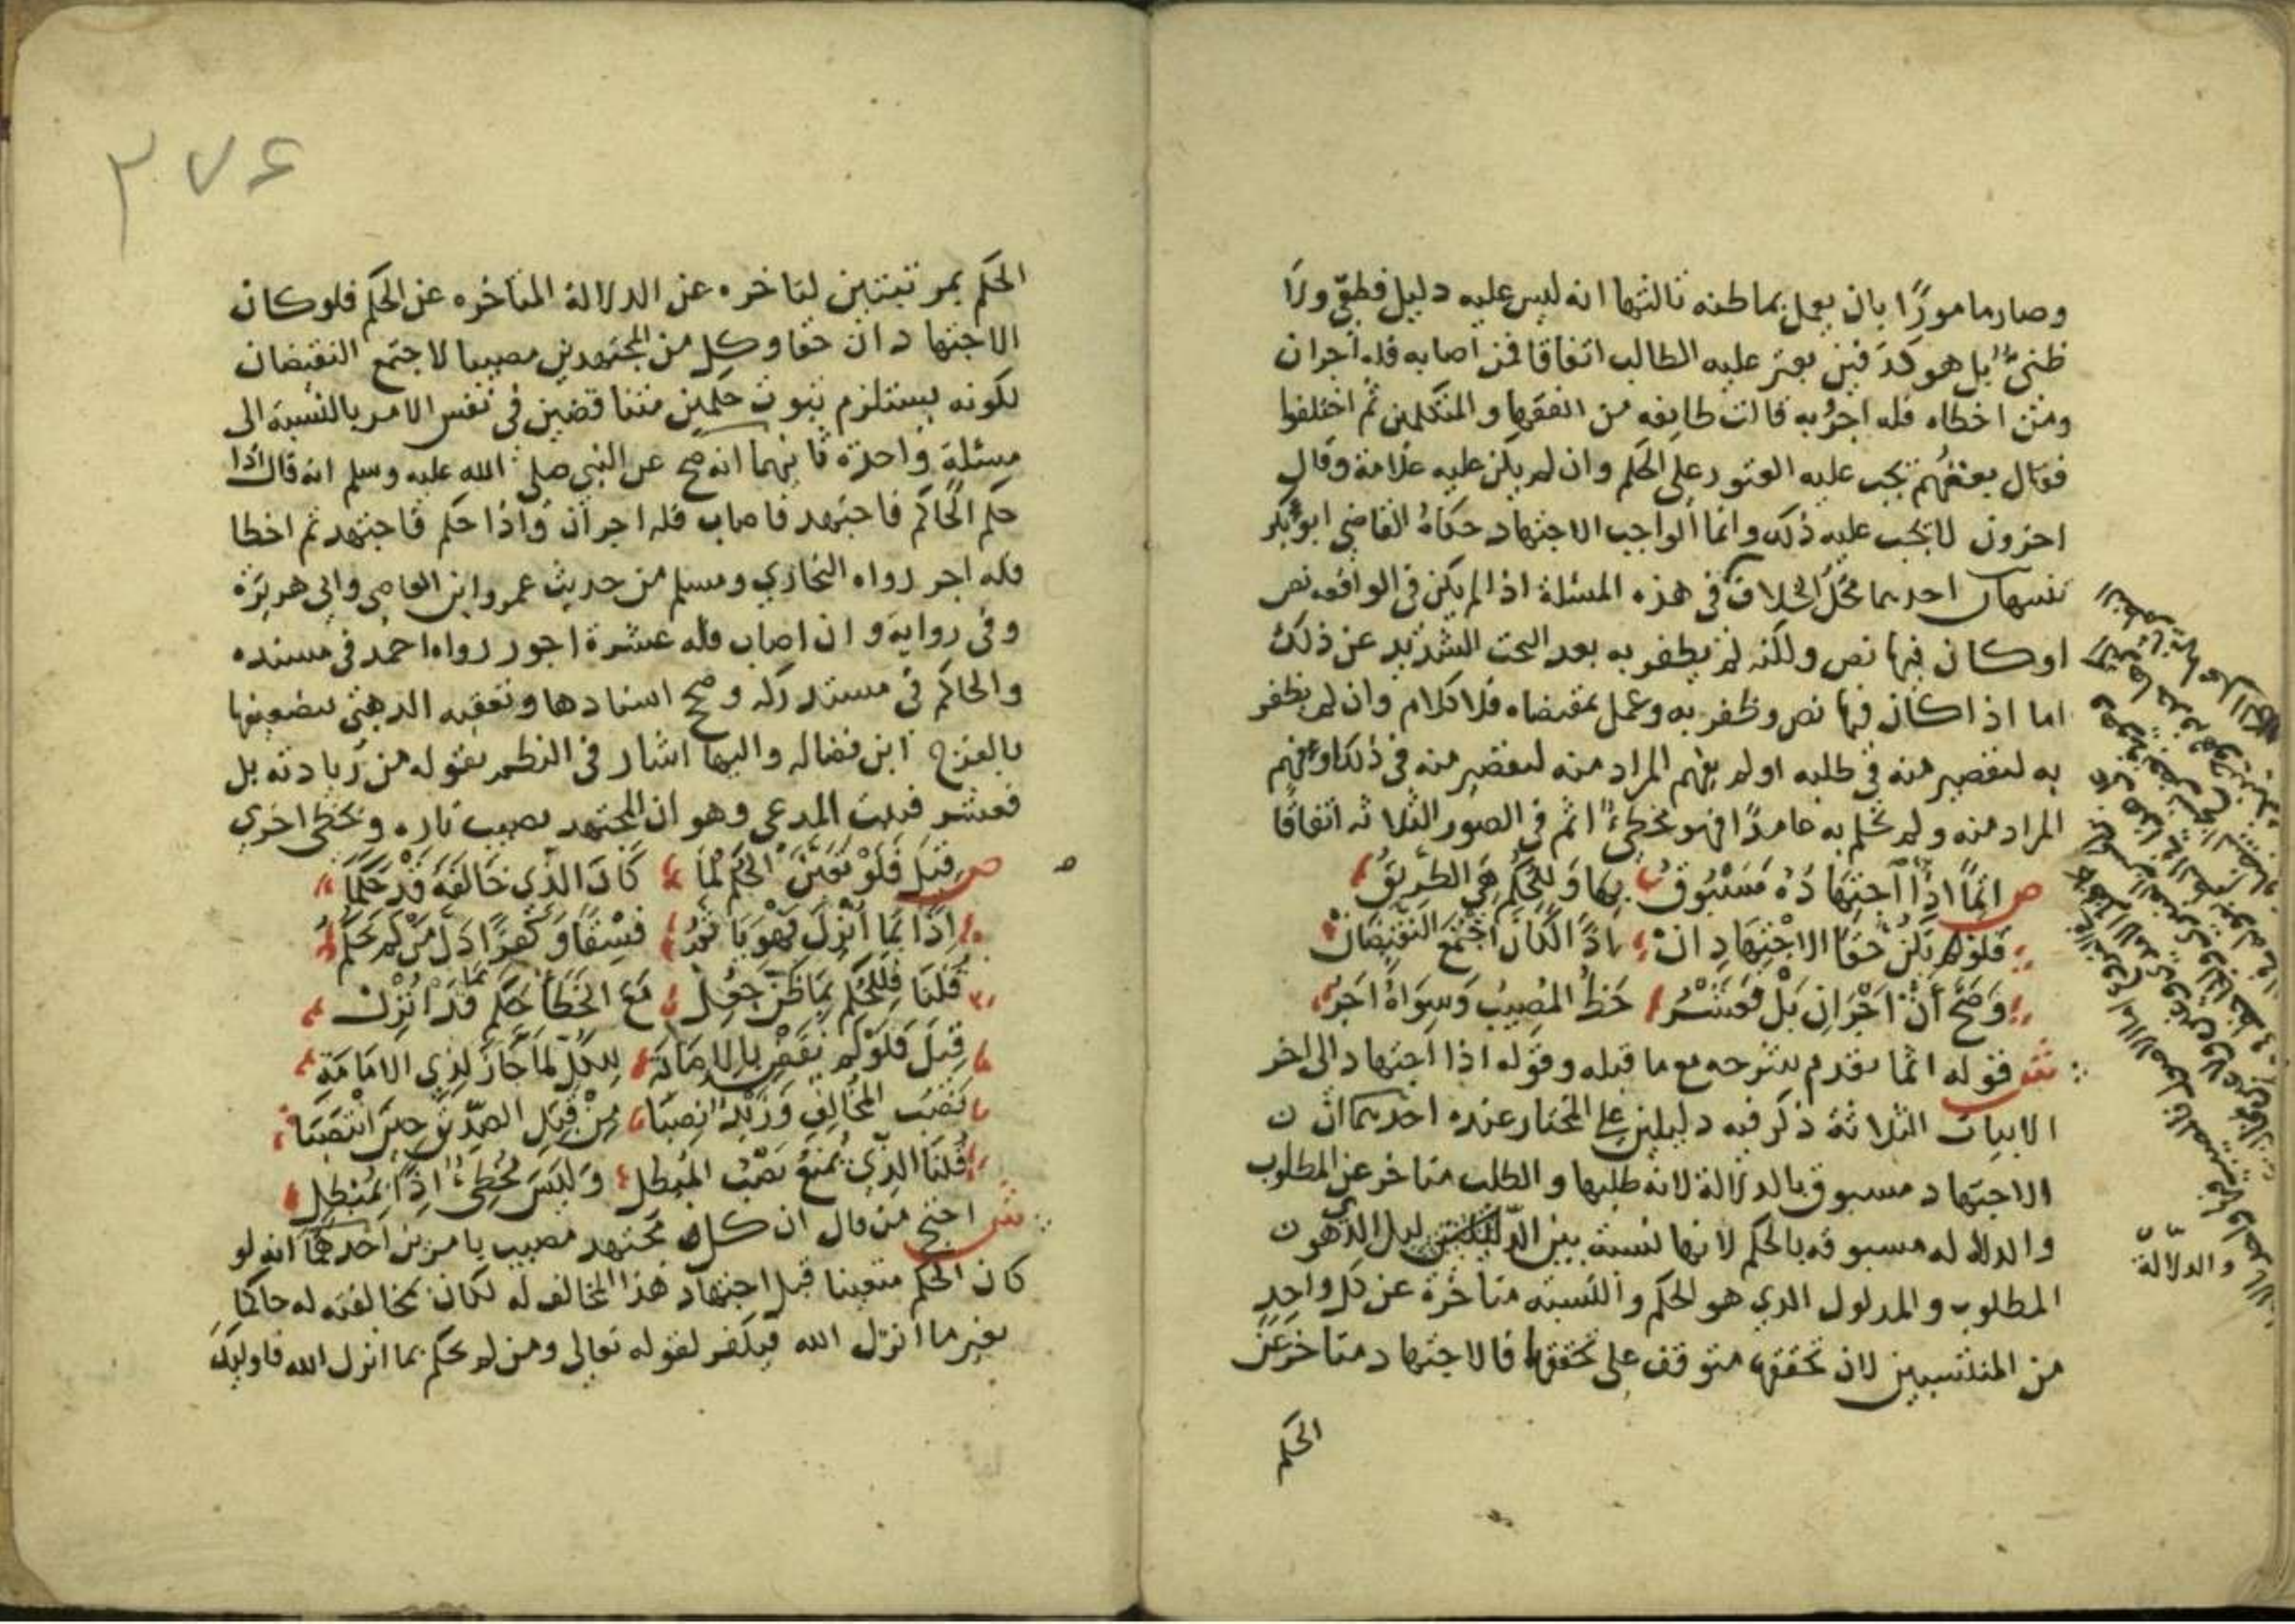 وصار مامورًا بان يعمل بما ظنه ثالثها انه ليس عليه دليل قطعي ولا
ظني بل هو كدفين يعثر عليه الطالب اتفاقا فمن اصابه فله اجران
ومن اخطاه فله اجر وبه قالت طايفه من الفقها والمتكلمين ثم اختلفوا
فقال بعضهم يجب عليه العثور على الحكم وان لم يكن عليه علامة وقال
اخرون لا يجب عليه ذلك وانما الواجب الاجتهاد حكاه القاضي ابو بكر
تنبيهان احدهما محل الخلاف في هذه المسئلة اذا لم يكن في الواقعه نص
او كان فيها نص ولكنه لم يظفر به بعد البحث الشديد عن ذلك
اما اذا كان فيها نص وظفر به وعمل بمقتضاه فلا كلام وان لم يظفر
به لتقصير منه في طلبه او لم يفهم المراد منه لتقصير منه في ذلك او فهم
المراد منه ولم يحكم به عامدًا فهو مخطئ اثم في الصور الثلاثه اتفاقًا
ص انما اذا اجتهاده مسبوق بها وللحكم هي الطريق
فلو يكن حقا الاجتهادان اذًا لكان اجتمع النقيضان
وصح ان اجران بل فعشر حظ المصيب وسواه اجر
ش قوله انما تقدم شرحه مع ما قبله وقوله اذا اجتهاد الى اخر
الابيات الثلاثة ذكر فيه دليلين على المختار عنده احدهما ان
الاجتهاد مسبوق بالدلالة لانه طلبها والطلب متاخر عن المطلوب
والدلاله مسبوقه بالحكم لانها نسبة بين الدليل الذي هو
المطلوب والمدلول الذي هو الحكم والنسبه متأخرة عن كل واحد
من المنتسبين لان تحققها متوقف على تحققها فالاجتهاد متاخر عن
الحكم
والدلالة
٢٧٤
الحكم بمرتبتين لتاخره عن الدلالة المتاخره عن الحكم فلو كان
الاجتهادان حقا وكل من المجتهدين مصيبا لاجتمع النقيضان
لكونه يستلزم ثبوت حكمين متناقضين في نفس الامر بالنسبة الى
مسئلة واحدة ثانيهما انه صح عن النبي صلى الله عليه وسلم انه قال اذا
حكم الحاكم فاجتهد فاصاب فله اجران واذا حكم فاجتهد ثم اخطا
فله اجر رواه البخاري ومسلم من حديث عمرو ابن العاص وابي هريرة
وفي رواية وان اصاب فله عشرة اجور رواه احمد في مسنده
والحاكم في مستدركه وصحح اسنادها وتعقبه الذهبي بضعفها
بالفرج ابن فضاله واليها اشار في النظم بقوله من زيادته بل
فعشر فثبت المدعى وهو ان المجتهد يصيب تاره ويخطي اخرى
ص قيل فلو تعين الحكم لما كان الذي خالفه قد حكما
اذًا بما انزل فهو يا ثور فسقا وكفرًا دل من لم يحكم
قلنا فللحكم بما ظن جعل مع الخطأ حكم بما قد انزل
قيل فلو لم نقض بالاصابة للكل لما جاز لذي الامامة
نصب المخالف وزيد انصبا من قبل الصديق حين انتصبا
قلنا الذي يمنع نصب المبطل وليس مخطئ اذًا بمبطل
ش احتج من قال ان كل مجتهد مصيب بامرين احدهما انه لو
كان الحكم متعينا قبل اجتهاد هذا المخالف له لكان بمخالفته له حاكما
بغير ما انزل الله فيكفر لقوله تعالى ومن لم يحكم بما انزل الله فاوليك